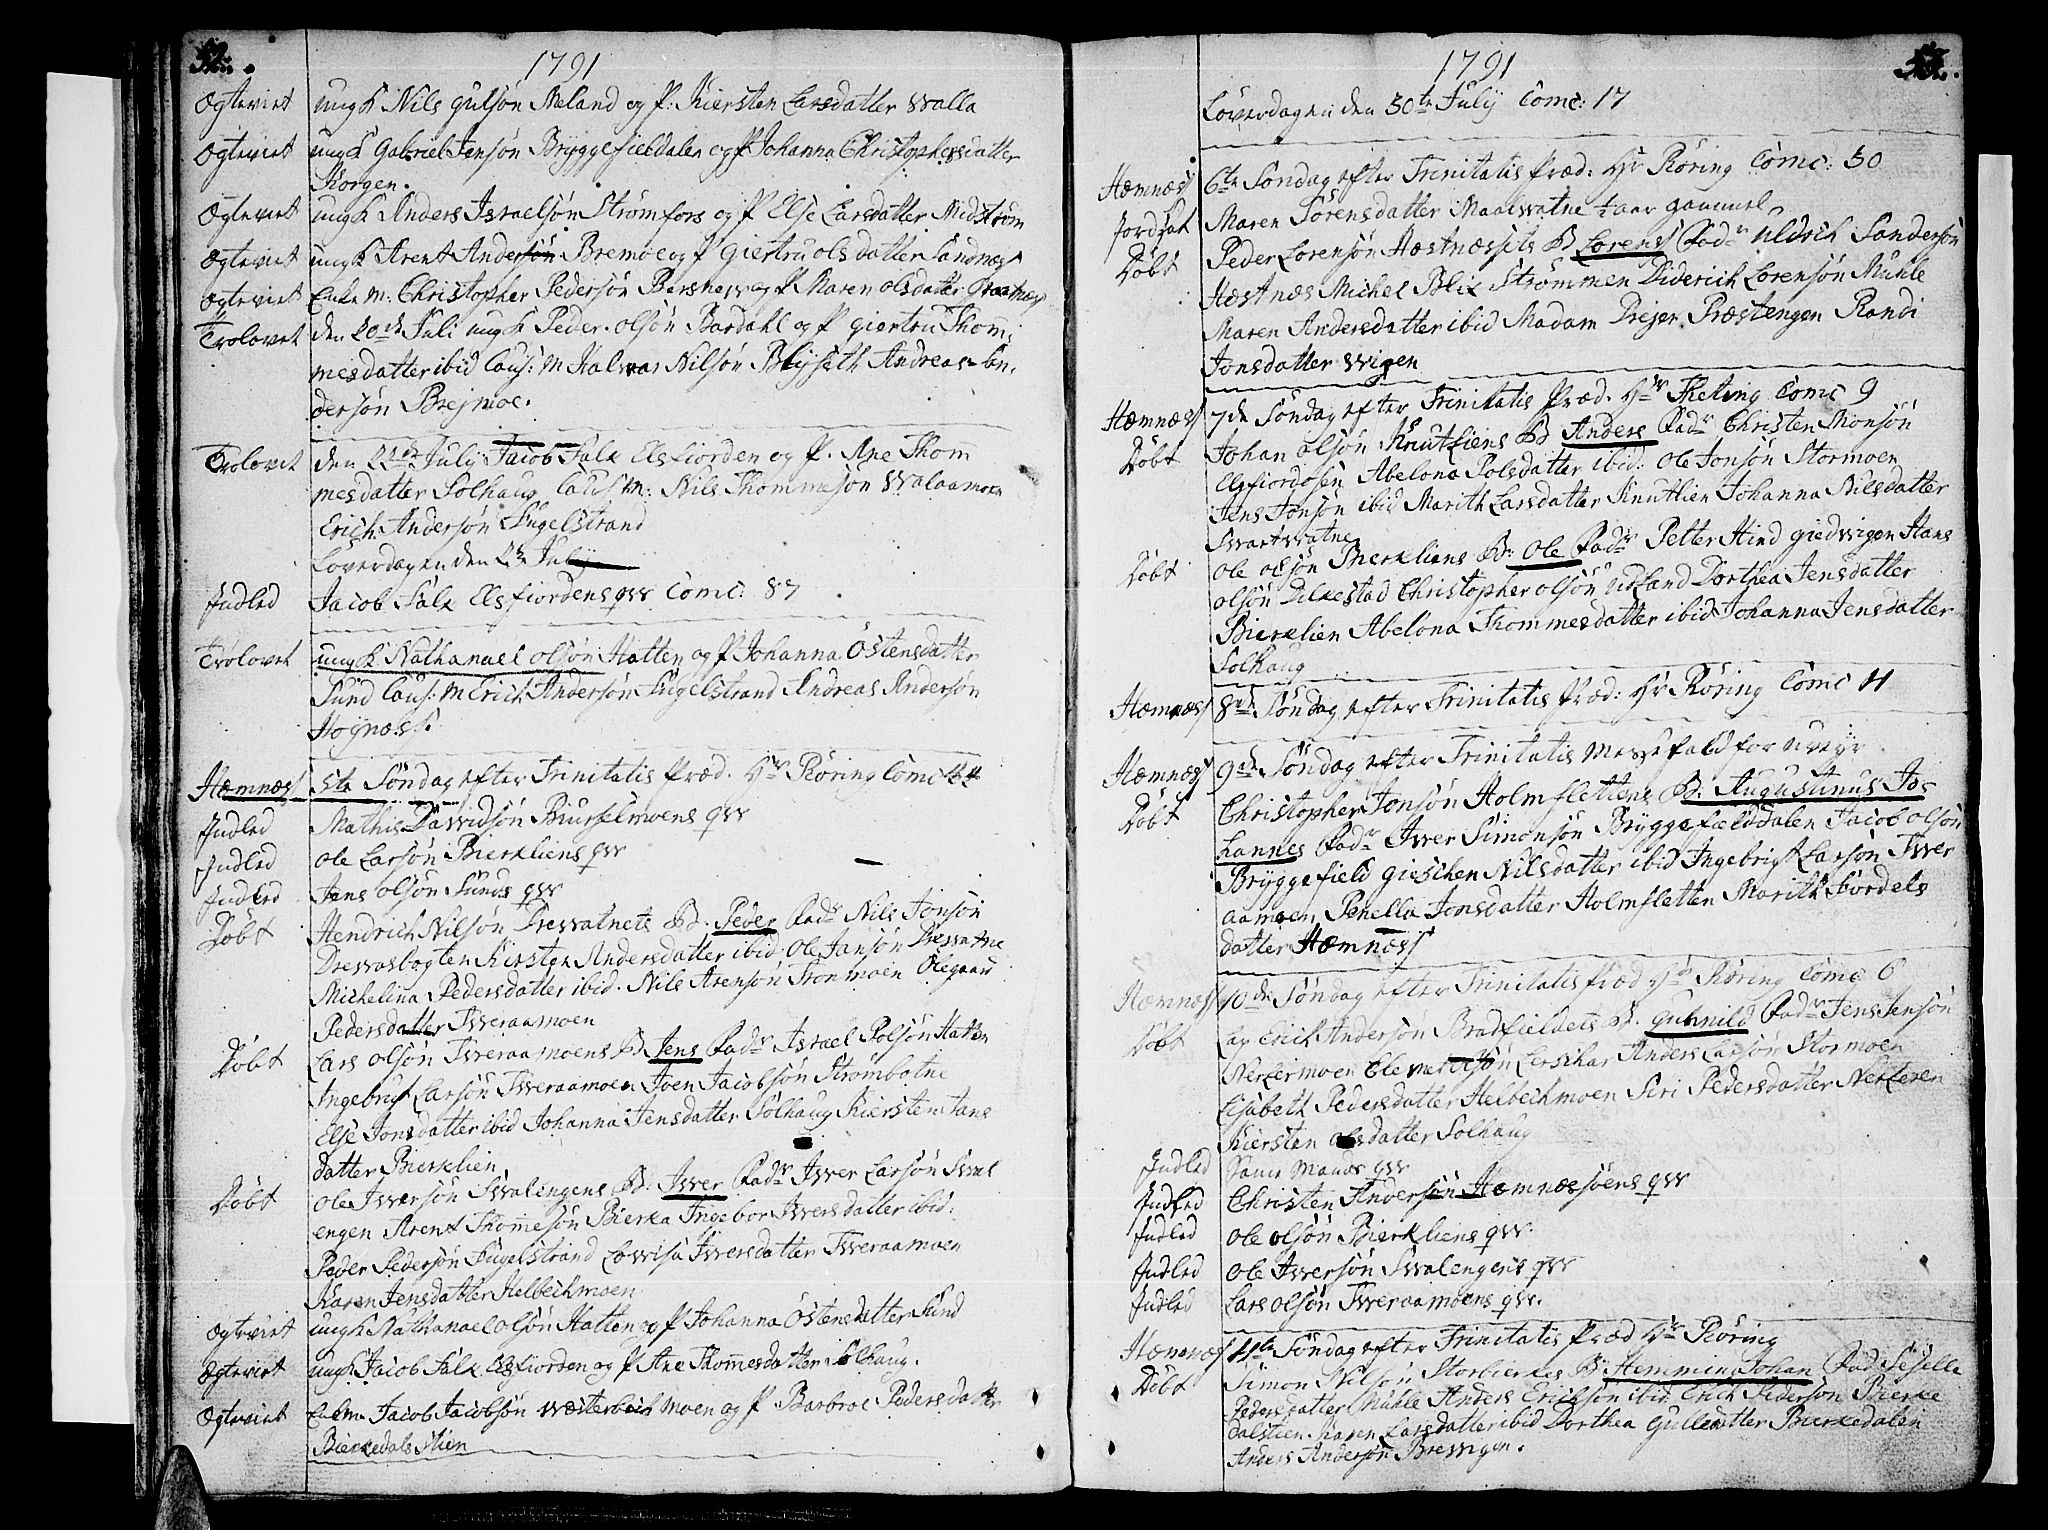 52.
1791
Ogtevirt ung K Nils Gulsøn Meland og P: Kiersten Larsdatter Walla
Ogtevirt ungK Gabriel Jensøn Bryggefieldalen og P Johanna Christophersdatter
Korgen.
Ogtevirt ungK Anders Israelsøn Strømfors og P Else Larsdatter Midstrøm
Ogtevirt ungK Arent Andersøn Bremoe og P Giertru olsdatter Sandnæs
Ogtevirt Enke M: Christopher Pedersøn og P Maren olsdatter
Trolovet den 20de Juli ungK Peder olsøn Bardahl og P giertru Thom,
mesdatter ibid Caus: M Halvor Nilsøn Blyseth Andreas An,
dersøn Brejmoe.
Trolovet den July Jacob Falk Elsfiorden og P. Ane Thom
mesdatter Solhaug Caus M: Nils Thommesøn Walaamoen
Erich Andersøn Fugelstrand
Løverdagen den July
Indled Jacob Falk Elsfiordens qvv Comc: 87
Trolovet ungK Nathanael olsøn Hatten og P Johanna Østensdatter
Sund Caus: M Erich Andersøn Fugelstrand Andreas Andersøn
Høgnæss.
Hæmnæss 5te Søndag efter Trinitatis Præd. Hr Røring Comc
Indled Mathis Davidsøn qvv
Indled Ole Larsøn Bierkliens qvv
Indled Jens olsøn Sunds qvv
Døbt Hendrich Nilsøn Dresvatnets B. Peder Fadr Nils Jonsøn
Dresvasbogten Kirsten Andersdatter ibid. Ole Jansøn Dresvatne
Michelina Pedersdatter ibid. Nils Arensøn Tronmoen Olegaar
Pedersdatter Tveraamoen
Døbt Lars olsøn Tveraamoens B Jens Fadr Israel Polsøn Hatten
Ingebrigt Larsøn Tveraamoen Joen Jacobsøn Strømbotne
Else Jonsdatter ibid Johanna Jensdatter Solhaug Kiersten Jans
datter Bierklien
Døbt Ole Iversøn Svalengens B. Iver Fadr Iver Larsøn Sval
engen Arent Thomesøn Bierka Ingebor Iversdatter ibid:
Peder Pedersøn Fugelstrand Lovisa Iversdatter Tveraamoen
Karen Jensdatter Helbechmoen
Ogtevirt ungK Nathanael olsøn Hatten og P Johanna Østensdatter Sund
Ogtevirt ungK Jacob Falk Elsfiorden og P Ane Thommesdatter Solhaug.
Ogtevirt Enkm. Jacob Jacobsøn moen og P Barbroe Pedersdatter
Bierkedals Stien
1791
Løverdagen den 30te July Comc: 17
Hæmnæss 6te Søndag efter Trinitatis Præd: Hr Røring Comc: 50
Jordfæst Maren Sørensdatter Maalvatne ½ aar gammel
Døbt Peder Lorensøn Hæstnæssets B Lorens Fadr Uldrich Sandersøn
Hæstnæs Michel Blix Strømmen Diderich Lorensøn Muhle
Maren Andersdatter ibid Madam Drejer Præstengen Randi
Jonsdatter Wigen
Hæmnæss 7de Søndag efter Trinitatis Præd. Hr Comc 9
Døbt Johan olsøn Knutliens B Anders Fadr Christen Monsøn
Elsfiordosen Abelona Polsdatter ibid: Ole Jonsøn Stormoen
Jens Jonsøn ibid Marith Larsdatter Knutlien Johanna Nilsdatter
Svartvatne
Døbt Ole olsøn Bierkliens B: Ole Fadr Petter Hind giedvigen Hans
olsøn Dilkestad Christopher olsøn Urland Dorthea Jensdatter
Bierklien Abelona Thommesdatter ibid Johanna Jensdatter
Solhaug
Hæmnæss 8de Søndag efter Trinitatis Præd: Hr Røring Comc 11
Hæmnæss 9de Søndag efter Trinitatis Messefald for Uveyr
Døbt Christopher Jonsøn Holmslettens B: Augustinus Jo=
hannes Fadr Iver Simonsøn Bryggefælddalen Jacob olsøn
Bryggefield gieschen Nilsdatter ibid Ingebrigt Larsøn Tver
aamoen Penella Jonsdatter Holmsletten Marith
datter Hæmnæss
Hæmnæss 10de Søndag efter Trinitatis Præd Hr Røring Comc 6
Døbt Lap Erich Andersøn Bradfieldets B. Guhnild Fadr Jens Jensøn
Nerlermoen Anders Larsøn Stormoen
Lisabeth Pedersdatter Helbechmoen Siri Pedersdatter
Kiersten olsdatter Solhaug
Indled Samme Mands qvv
Indled Christen Andersøn Hæmnæssøens qvv
Indled Ole olsøn Bierkliens qvv.
Indled Ole Iversøn Svalengens qvv
Indled Lars olsøn Tveraamoens qvv.
Hæmnæs 11te Søndag efter Trinitatis Præd Hr Røring
Døbt Simon Nilsøn Storbierkes B: Hemming Johan Fadr Sesella
Pedersdatter Muhle Anders Erichsøn ibid Erich Pedersøn Bierke
dalstien. Karen Larsdatter ibid Dorthea Gullesdatter Bierkedalen
Anders Andersøn Brevigen.